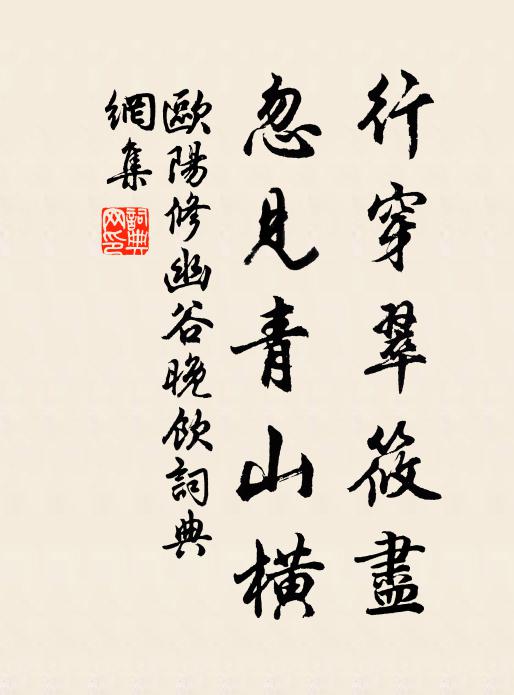 行穿翠筱盡
忽見青山橫
歐陽修幽谷晚飲詞典
網集
詞典
网印